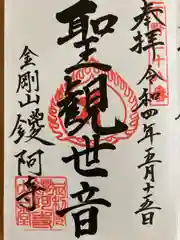 奉拝
令和四年五月十五日
聖観世音
金剛山
鑁阿寺